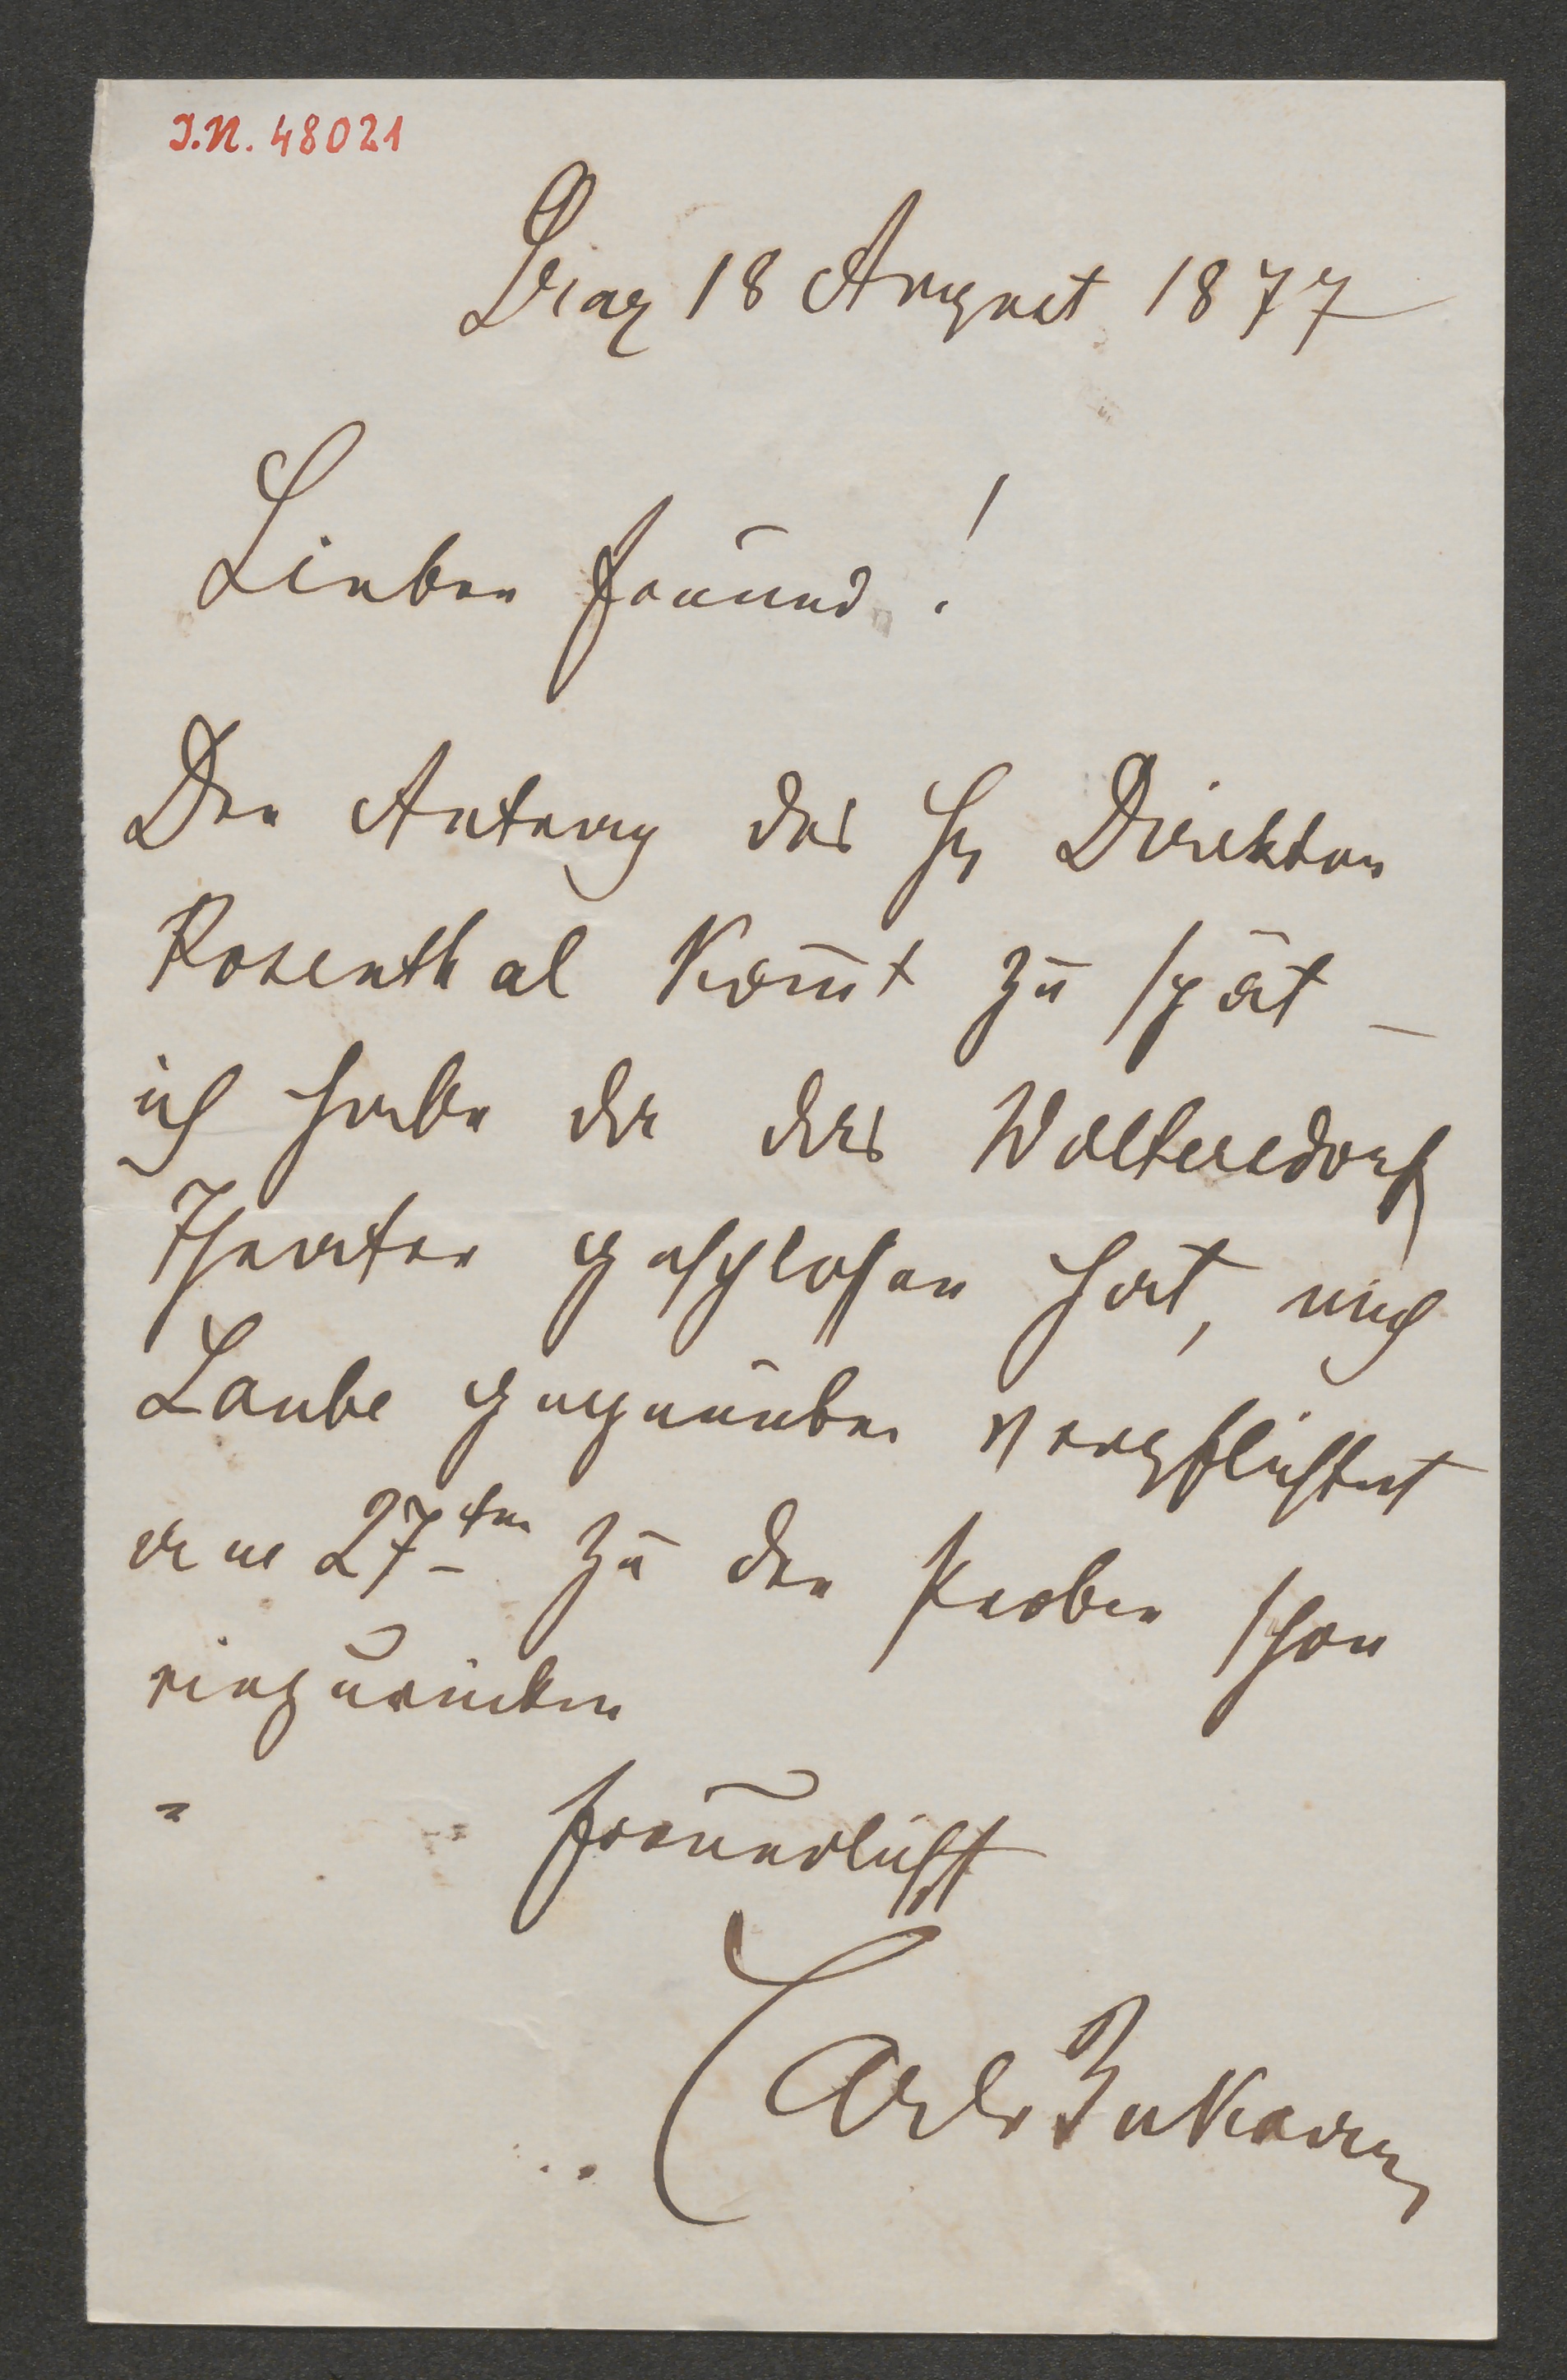 I.N. 48021
Graz 18 August 1877
Lieber Freund!
Der Antrag des Hr Direktor
Rosenthal kom̅t zu spät –
ich habe da das Woltersdorf
Theater geschlossen hat, mich
Laube gegenüber verpflichtet
am 27ten zu den Proben schon
einzurücken
Freundlichst
Carl